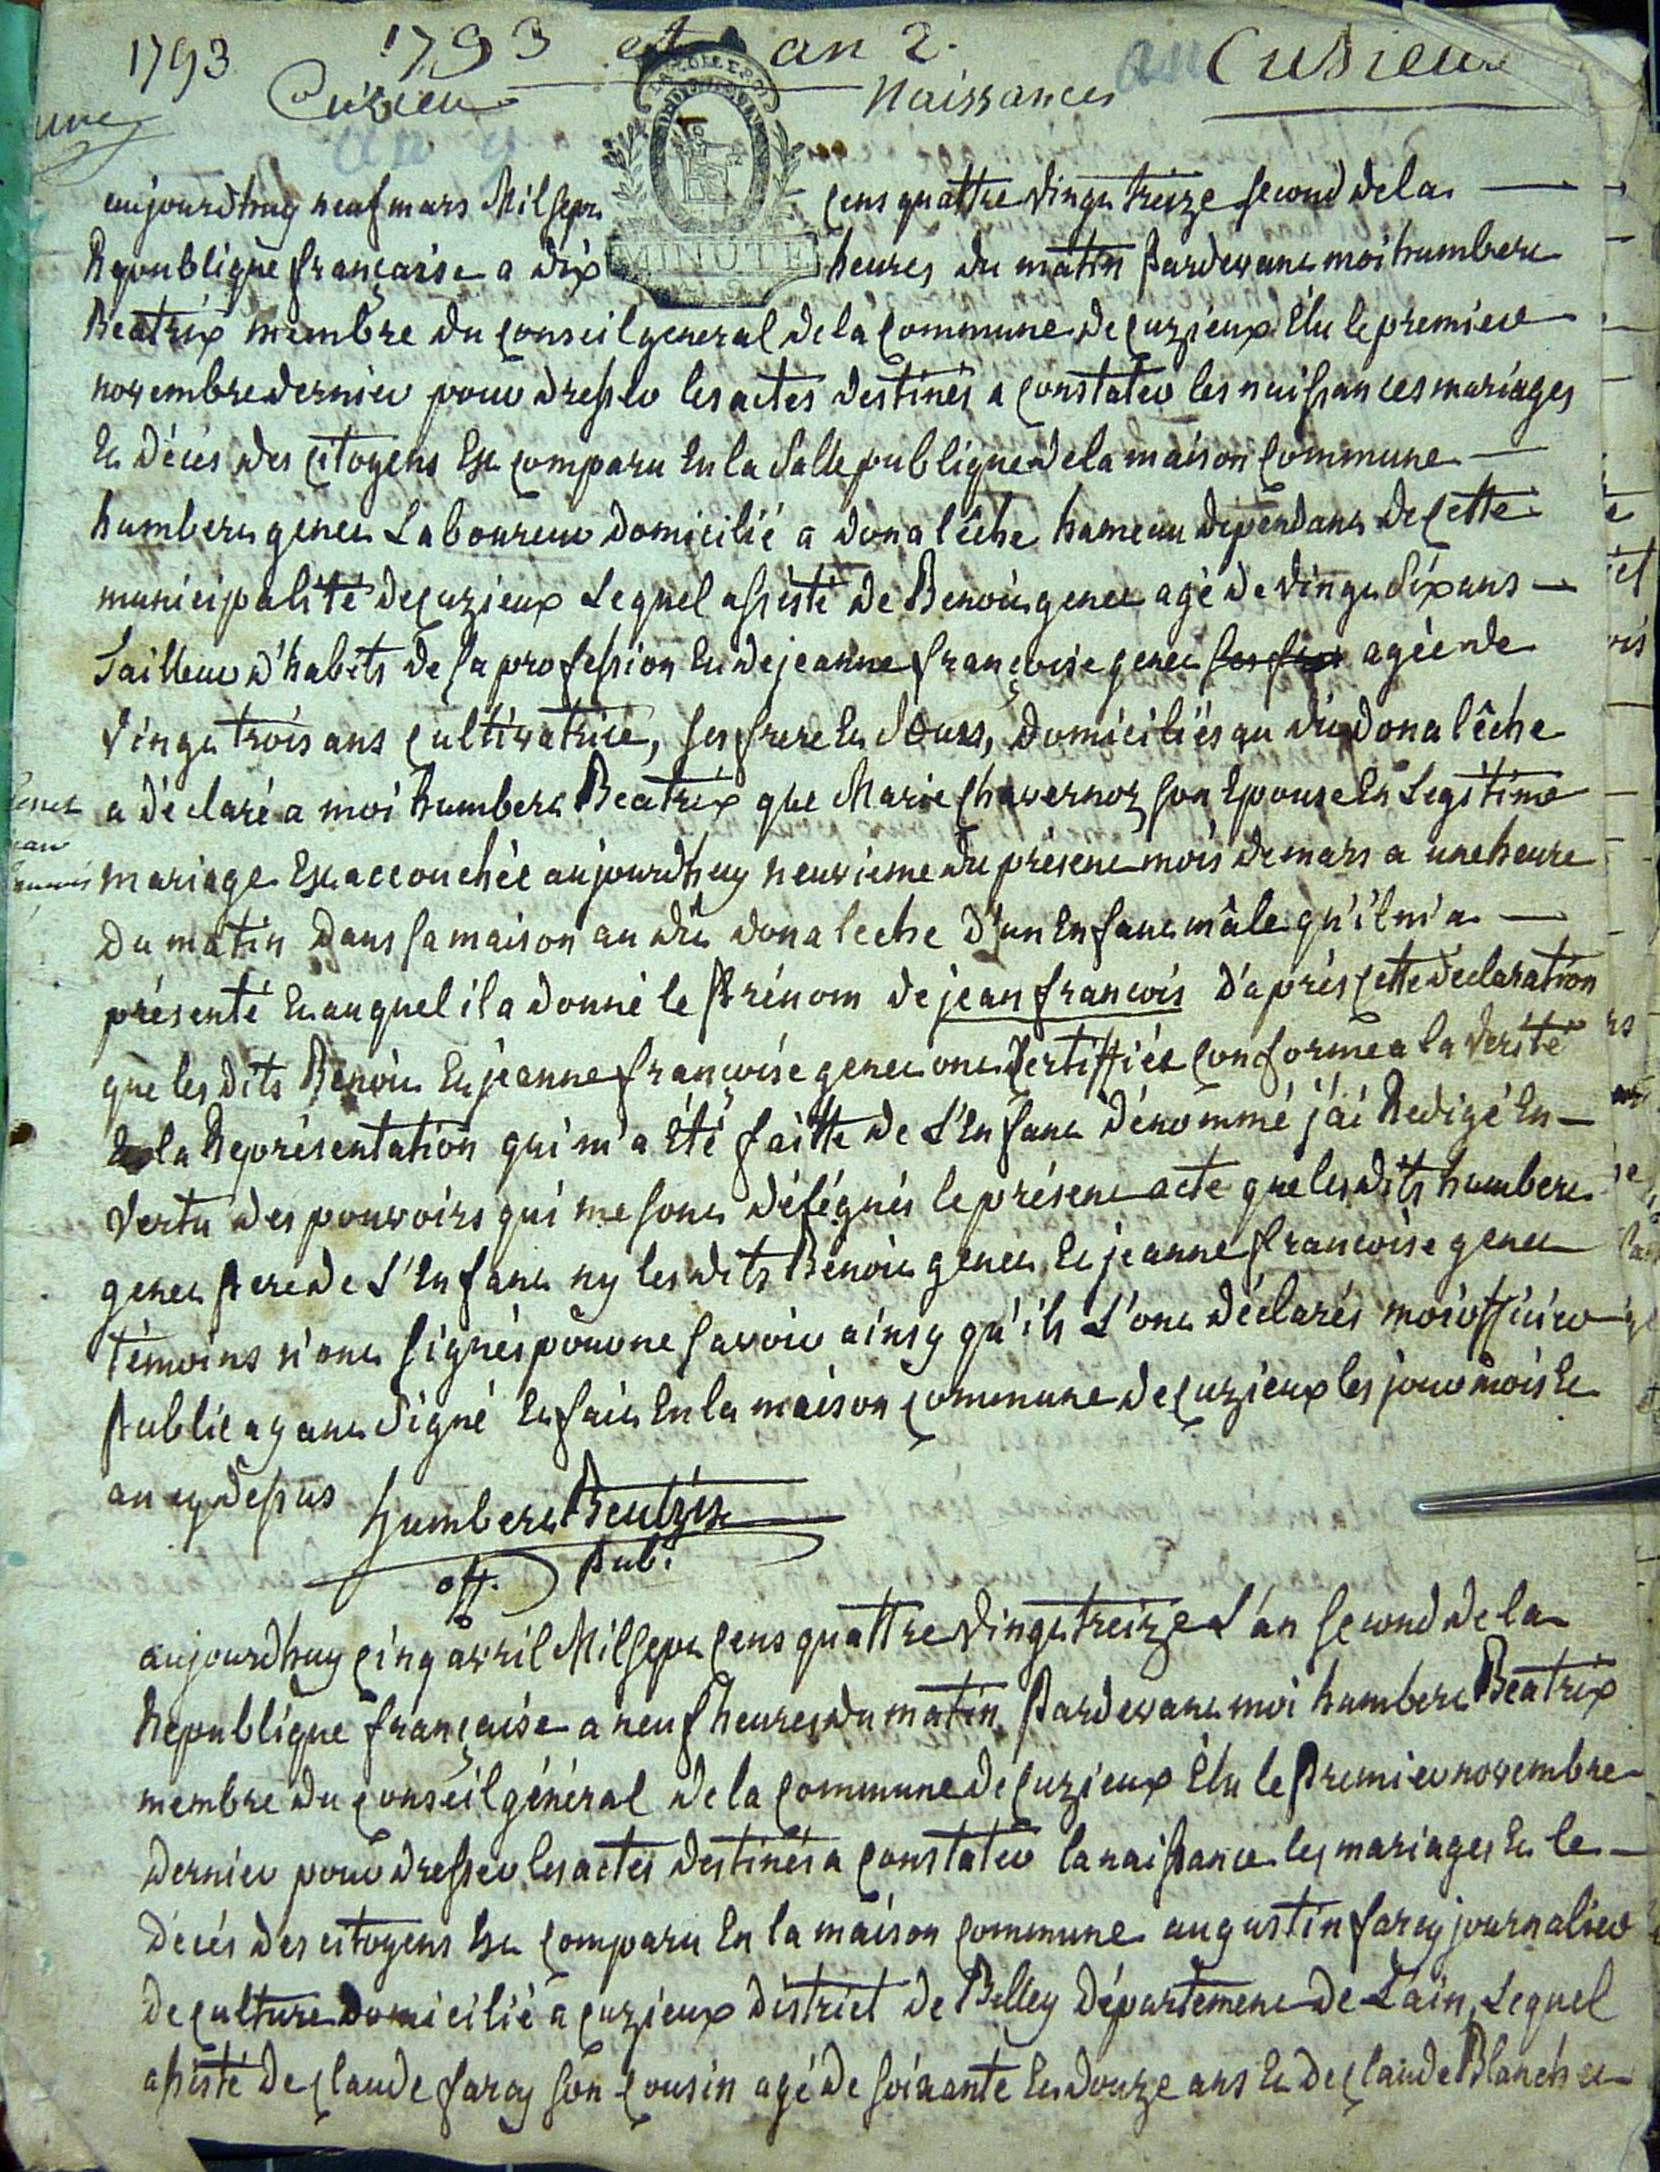 1793 1793 et an 2. an Cusieux
Cuzieu Naissances
an 2
MINUTE
aujourdhuy neuf mars Mil sept cens quattre vingt treize second de la
Republique française a dix heures du matin Pardevant moi humbert
Beatrix membre du conseil general de la commune de cuzieux Elu le premier
novembre dernier pour dresser les actes destinés a constater les naissances mariages
Et décés des citoyens Est comparu En la Salle publique de la maison Commune
humbert genet Laboureur domicilié a donalêche hameau dependant de Cette
municipalité de cuzieux Lequel assisté de Benoit genet agé de vingt Six ans
Tailleur d'habits de sa profession Et de jeanne françoise genet agée de
vingt trois ans cultivatrice, ses frere Et Sœurs, domiciliés au dit donalêche
a déclaré a moi humbert Beatrix que Marie chavernoz son Epouse En Legitime
genet
jean
mariage Est accouchée aujourdhuy neuvieme du présent mois de mars a une heure
du matin dans sa maison au dit donaleche d'un Enfant mâle qu'il m'a
présenté Et auquel il a donné le Prénom de jean francois d'aprés Cette déclaration
que les dits Benoit Et jeanne françoise genet ont Certiffiée conforme a la verité
Et la Représentation qui m'a Eté faitte de L'Enfant dénommé j'ai Redigé En
vertu des pouvoirs qui me sont délégués le présent acte que les dits humbert
genet Pere de L'Enfant ny les dits Benoit genet Et jeanne francoise genet
témoins n'ont signés pour ne savoir ainsy qu'ils L'ont déclarés moi officier
Public ayant Signé Et fait En la maison commune de cuzieux les jour mois Et
an cy dessus
humbert Beatrix
off. Pub.
aujourdhuy cinq avril Mil sept cens quattre vingt treize L'an second de la
Republique française a neuf heures du matin Pardevant moi humbert Beatrix
membre du conseil général de la commune de cuzieux Elu le Premier novembre
dernier pour dresser les actes destinés a constater la naissance les mariages Et le
décés des citoyens Est comparu En la maison commune augustin farcy journalier
de culture domicilié a cuzieux district de Belley département de Lain, Lequel
assisté de claude farcy son cousin agé de soixante Et douze ans Et de claude Blanchet